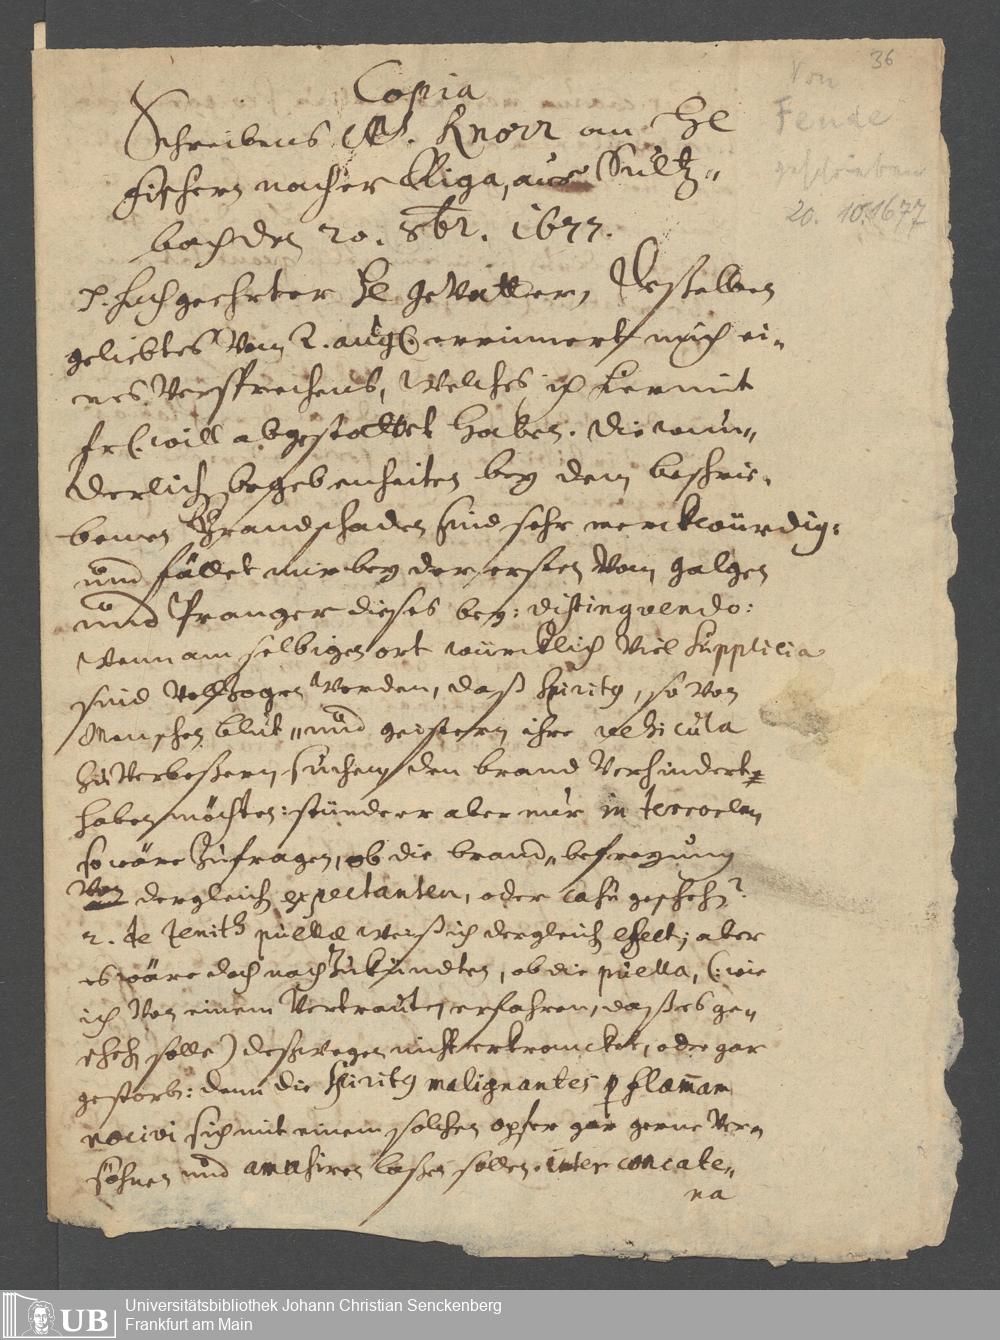 36
Von
Fende
geschrieben
20. 10. 1677
Copia
Schreibens M. Knorr an He
fischern nacher Riga, aus Sultz„
bach den 20. 8br. 1677.
P. hochgeehrter He Gevatter, desselben
geliebtes vom 2. aug. errinnert mich ei-
nes versprechens, welches ich hiermit
will abgestattet haben. die wun„
derlich begebenheiten bey dem beschrie-
benen Brandschaden sind sehr merckwürdig:
und fället mir bey der ersten vom galgen
und Pranger dieses bey: distingvendo:
wenn am selbigen ort würcklich viel supplicia
sind vollzogen worden, daß spiritg, so von
Menschen blut„ und geistern ihre vehicula
zu verbeßern suchen, den brand verhindert
haben möchten: stünde er aber nur in terrorem
so wäre zu fragen, ob die brand„ befreyung
von dergleich expectanten, oder casu gescheh?
2. de puellæ weiß ich dergleich effect; aber
es wäre doch noch zu kündten, ob die puella, (: wie
ich von einem vertrauten erfahren, daß es ge„
scheh solle) deßwegen nicht erkrancket, oder gar
gestorb: denn die spiritg malignantes p flamam
nocivi sich mit einem solchen opfer gar gerne ver„
söhnen und amusiren laßen sollen. inter concate„
na
UB
Universitätsbibliothek Johann Christian Senckenberg
Frankfurt am Main